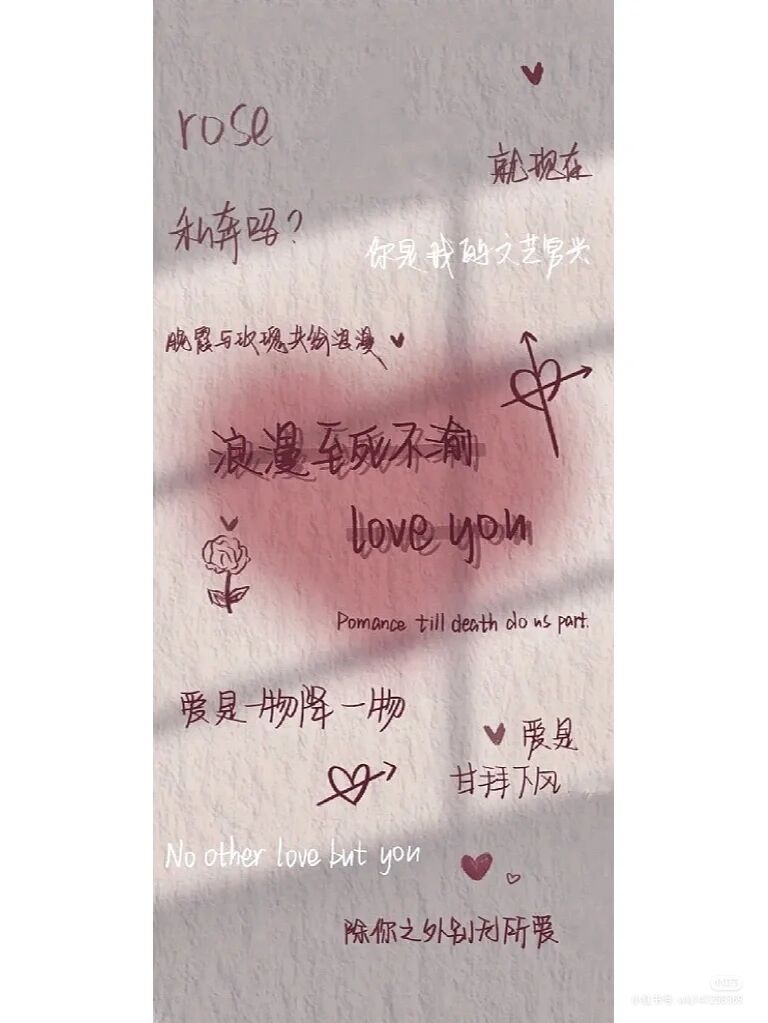 rose
就现在
私奔吗?
你是我的文艺复兴
晚霞与玫瑰共给浪漫
浪漫至死不渝
love you
Pomance till death do us part.
爱是一物降一物
爱是
甘拜下风
No other love but you
除你之外别无所爱
小红书
小红书号: